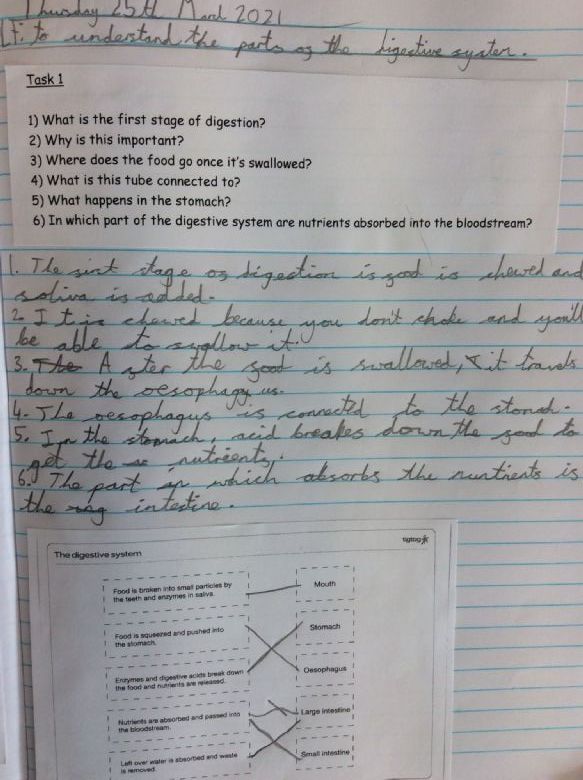 Thursday 25th March 2021
Lt: to understand the parts of the digestive system.
Task 1
1) What is the first stage of digestion?
2) Why is this important?
3) Where does the food go once it's swallowed?
4) What is this tube connected to?
5) What happens in the stomach?
6) In which part of the digestive system are nutrients absorbed into the bloodstream?
1. The first stage of digestion is food is chewed and
saliva is added.
2. It is chewed because you don't choke and you'll
be able to swallow it.
3. After the food is swallowed, it travels
down the oesophagus.
4. The oesophagus is connected to the stomach.
5. In the stomach, acid breakes down the food to
get the nutrients.
6. The part which absorbs the nuntrients is
the intestine.
The digestive system
Food is broken into small particles by
the teeth and enzymes in saliva.
Mouth
Food is squeezed and pushed into
the stomach.
Stomach
Enzymes and digestive acids break down
the food and nutrients are released.
Oesophagus
Nutrients are absorbed and passed into
the bloodstream.
Large intestine
Left over water is absorbed and waste
is removed.
Small intestine